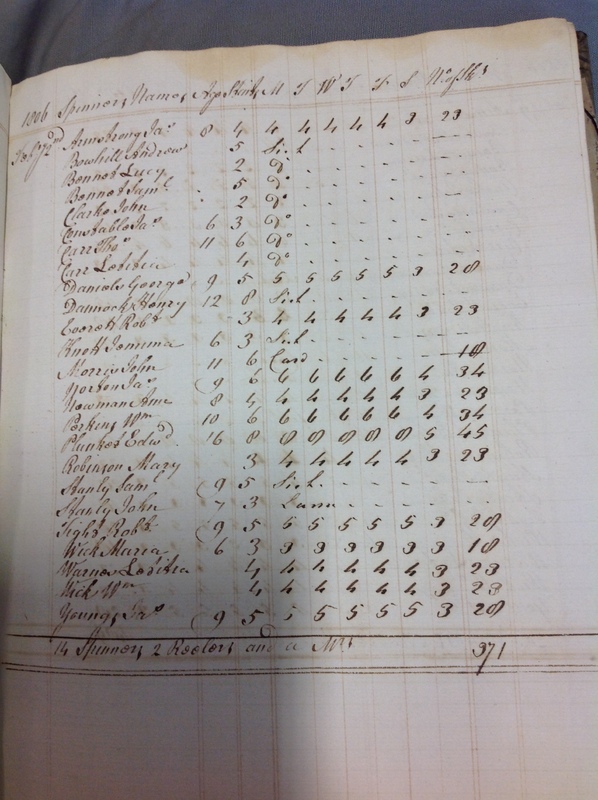 1806 Spinners Names Age Stint M T W T F S No of Sks
Feby 22nd Armstrong Jas 8 4 4 4 4 4 4 3 23
Bowhill Andrew 5 Sick - - - - -
Bennet Lucy 2 Do - - - - -
Bennet Saml 5 Do - - - - -
Clarke John 2 Do - - - - -
Constable Jas 6 3 Do - - - - -
Carr Thos 11 6 Do - - - - -
Carr Letitia 4 Do - - - - -
Daniels George 9 5 5 5 5 5 5 3 28
Dannock Henry 12 8 Sick - - - - -
Everett Robt 3 4 4 4 4 4 3 23
Knott Jemima 6 3 Sick - - - - -
Morris John 11 6 Card - - - - - 18
Norton Jas 9 6 6 6 6 6 6 4 34
Newman Ann 8 4 4 4 4 4 4 3 23
Perkins Wm 10 6 6 6 6 6 6 4 34
Plunket Edwd 16 8 8 8 8 8 8 5 45
Robinson Mary 3 4 4 4 4 4 3 23
Stanly Saml 9 5 Sick - - - - -
Stanly John 7 3 - - - - -
Robt 9 5 5 5 5 5 5 3 28
Wick Maria 6 3 3 3 3 3 3 3 18
Warnes Letitia 4 4 4 4 4 4 3 23
Wick Wm 4 4 4 4 4 4 3 23
Youngs Jas 9 5 5 5 5 5 5 3 28
14 Spinners 2 Reelers and a Mrs 371